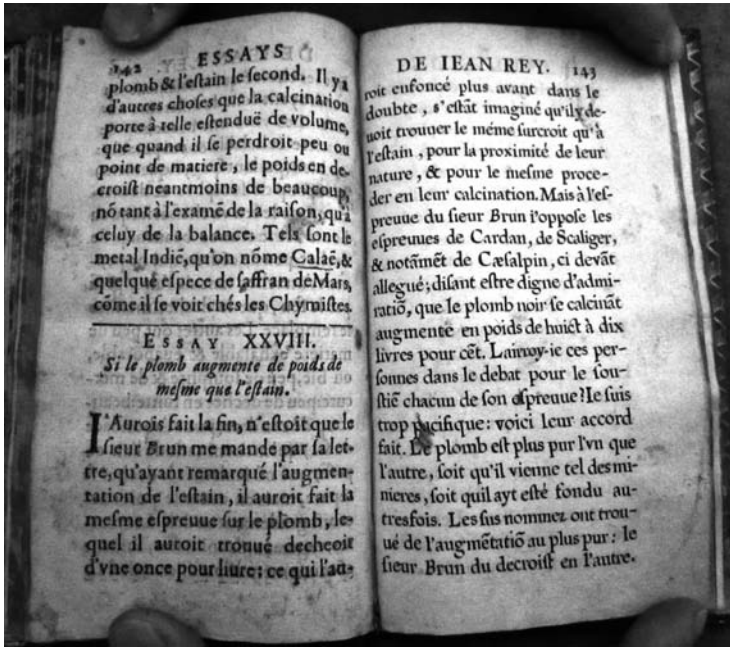 142 ESSAYS
plomb & l'eſtain le ſecond. Il y a
d'autres choſes que la calcination
porte à telle eſtenduë de volume,
que quand il ſe perdroit peu ou
point de matiere, le poids en de-
croiſt neantmoins de beaucoup,
nõ tant à l'examẽ de la raiſon, qu'à
celuy de la balance. Tels ſont le
metal Indiẽ, qu'on nõme Calaẽ, &
quelqué eſpece de ſaffran de Mars,
cõme il ſe voit chés les Chymiſtes.
ESSAY XXVIII.
Si le plomb augmente de poids de
meſme que l'eſtain.
I'Aurois fait la fin, n'eſtoit que le
ſieur Brun me mande par ſa let-
tre, qu'ayant remarqué l'augmen-
tation de l'eſtain, il auroit fait la
meſme eſpreuue ſur le plomb, le-
quel il auroit trouué decheoit
d'vne once pour liure: ce qui l'au-
DE IEAN REY. 143
roit enfoncé plus avant dans le
doubte, s'eſtãt imaginé qu'il y de-
uoit trouuer le méme ſurcroit qu'à
l'eſtain, pour la proximité de leur
nature, & pour le meſme proce-
der en leur calcination. Mais à l'eſ-
preuue du ſieur Brun i'oppoſe les
eſpreuues de Cardan, de Scaliger,
& notãmẽt de Cæſalpin, ci devãt
allegué; diſant eſtre digne d'admi-
ratiõ, que le plomb noir ſe calcinãt
augmente en poids de huict à dix
livres pour cẽt. Lairroy-ie ces per-
ſonnes dans le debat pour le ſou-
ſtiẽ chacun de ſon eſpreuue? Ie ſuis
trop pacifique: voici leur accord
fait. Le plomb eſt plus pur l'vn que
l'autre, ſoit qu'il vienne tel des mi-
nieres, ſoit quil ayt eſté fondu au-
tresfois. Les ſus nommez ont trou-
ué de l'augmẽtatiõ au plus pur: le
ſieur Brun du decroiſt en l'autre.